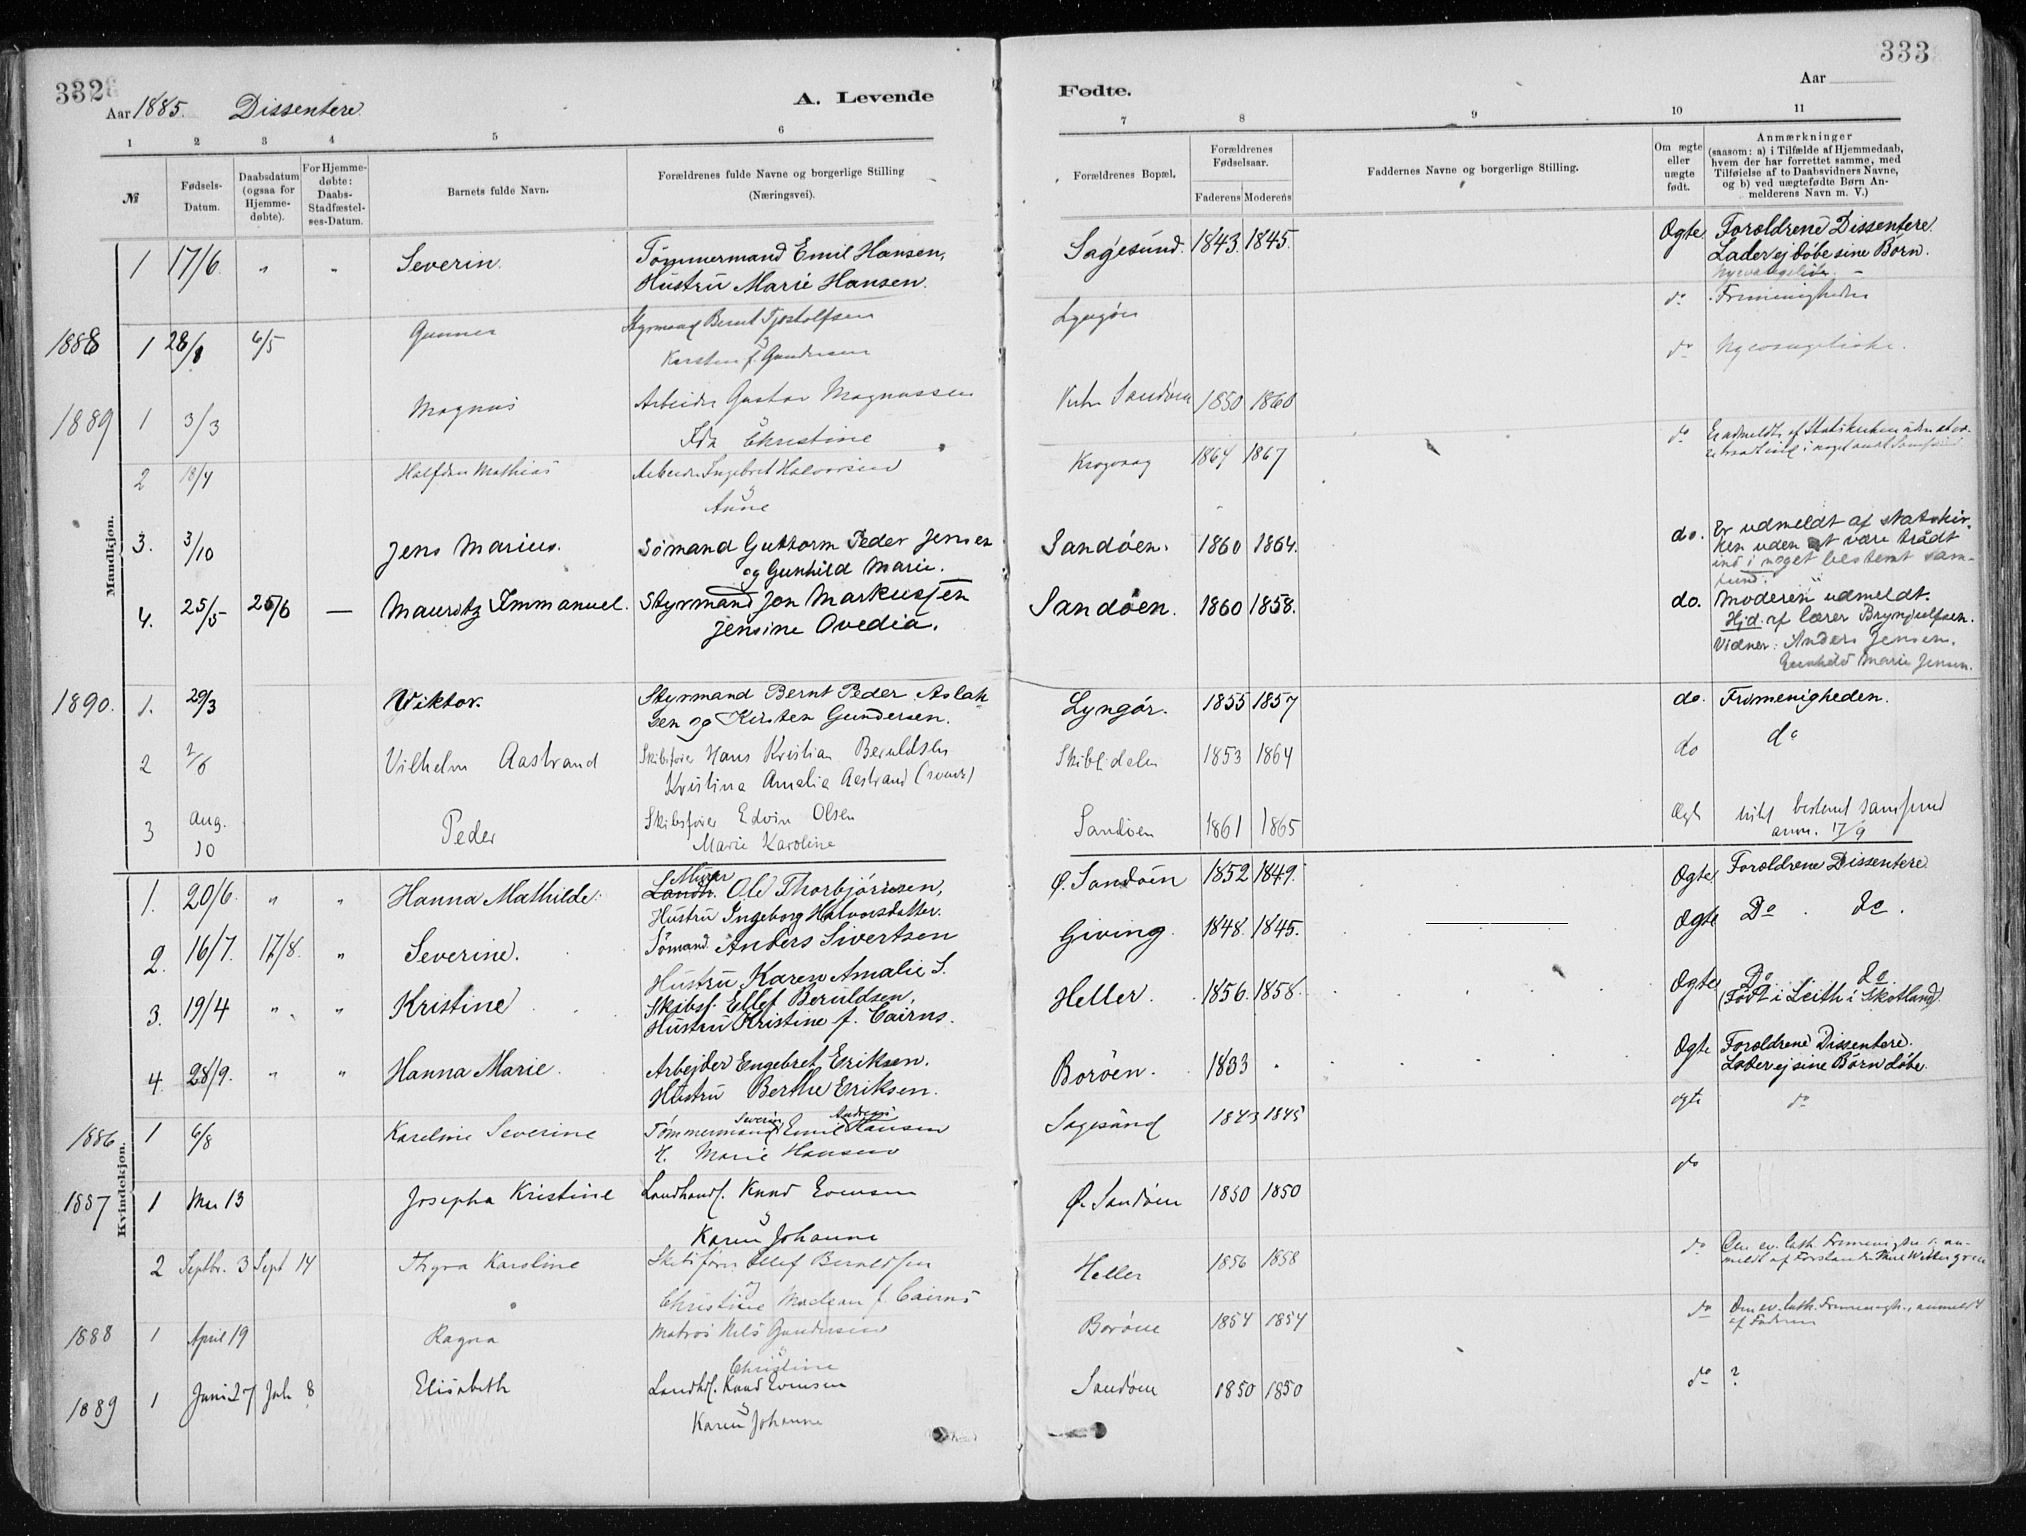 332
333
Aar 1885. Dissentere.
A. Levende
Fødte.
Aar
1 2 3 4 5 6 7 8 9 10 11
№
Fødsels-Datum.
Daabsdatum (ogsaa for Hjemme-døbte).
For Hjemme-døbte: Daabs-Stadfæstel-ses-Datum.
Barnets fulde Navn.
Forældrenes fulde Navne og borgerlige Stilling
(Næringsvei).
Forældrenes Bopæl.
Forældrenes Fødselsaar.
Faderens Moderens
Faddernes Navne og borgerlige Stilling.
Om ægte eller uægte født.
Anmærkninger
(saasom: a) i Tilfælde af Hjemmedaab,
hvem der har forrettet samme, med
Tilføielse af to Daabsvidners Navne,
og b) ved uægtefødte Børn An-
melderens Navn m. V.)
Mandkjøn.
1 17/6 " " Severin. Tømmermand Emil Hansen, Sagesund. 1843. 1845. Ægte Forældrene Dissentere.
Hustru Marie Hansen. Lader ej døbe sine Børn.
1888 1 28/8 6/5 Gunner Styrmand Bernt Tjostolfsen Lyngør do Frimenigheden
Karsten f. Gundersen
1889 1 3/3 Magnus Arbeider Gustav Magnussen Sandøen 1850 1860 do
Ida Christine
2 18/4 Halfdan Mathias Arbeider Ingebret Halvorsen Krogvaag 1864 1867 do
Anne
3. 3/10 Jens Marius. Sømand Guttorm Peder Jensen Sandøen. 1860 1864. do. Er udmeldt af statskir-
og Gunhild Marie. ken uden at være trådt
ind i noget bestemt sam-
fund.
4. 25/5 26/6 — Mauritz Immanuel. Styrmand Jon Markussen Sandøen. 1860 1858. do. Moderen udmeldt.
Jensine Ovedia. Hjd. af lærer Brynjulfsen.
Vidner: Anders Jensen.
Gunhild Marie Jensen.
1890. 1. 29/3 Viktor. Styrmand Bernt Peder Aslak- Lyngør. 1855 1857 do. Frimenigheden.
sen og Kirsten Gundersen.
2 2/6 Vilhelm Aastrand Skibsfører Hans Kristian Beruldsen Skibsdalen 1853 1864 do do
Kristina Amalia Aastrand
3 Aug. 10 Peder Skibsfører Edvin Olsen Sandøen 1861 1865 Ægte bestemt samfund
Marie Karoline anm. 17/9
Kvindekjøn.
1. 20/6. " " Hanna Mathilde. Murer Landh. Ole Thorbjørnsen, Ø. Sandøen 1852 1849. Ægte Forældrene Dissentere
Hustru Ingeborg Halvorsdatter.
2. 16/7. 17/8. " Severine. Sømand Anders Sivertsen Giving. 1848. 1845. Ægte Do. do.
Hustru Karen Amalie S.
3. 19/4 " " Kristine Skibsf. Ellef Beruldsen, Heller. 1856. 1858. Ægte Do do
Hustru Kristine f. Cairns. (Født i Leith i Skotland)
4. 28/9. " " Hanna Marie. Arbejder Engebret Eriksen. Borøen. 1833 Ægte Forældrene Dissentere.
Hustru Berthe Eriksen. Lader ej sine Børn døbe.
1886 1 6/8 Kareline Severine Tømmermand Severin Emil Andreas Hansen Sagesund 1843 1845 ægte do
H. Marie Hansen
1887 1 Mai 13 Josepha Kristine Landhandl. Knud Evensen Ø. Sandøen 1850 1850 do
Karen Johanne
2 Septbr. 3 Sept 14 Thyra Karoline Skibsfører Ellef Beruldsen Heller 1856 1858 do
Christine Maclean f. Cairns
1888 1 April 19 Ragna Matros Nils Gundersen Borøen 1854 1854 do
Christine af Faderen
1889 1 Juni 27 Juli 8 Elisabeth Landhdl. Knud Evensen Sandøen 1850 1850 do ?
Karen Johanne